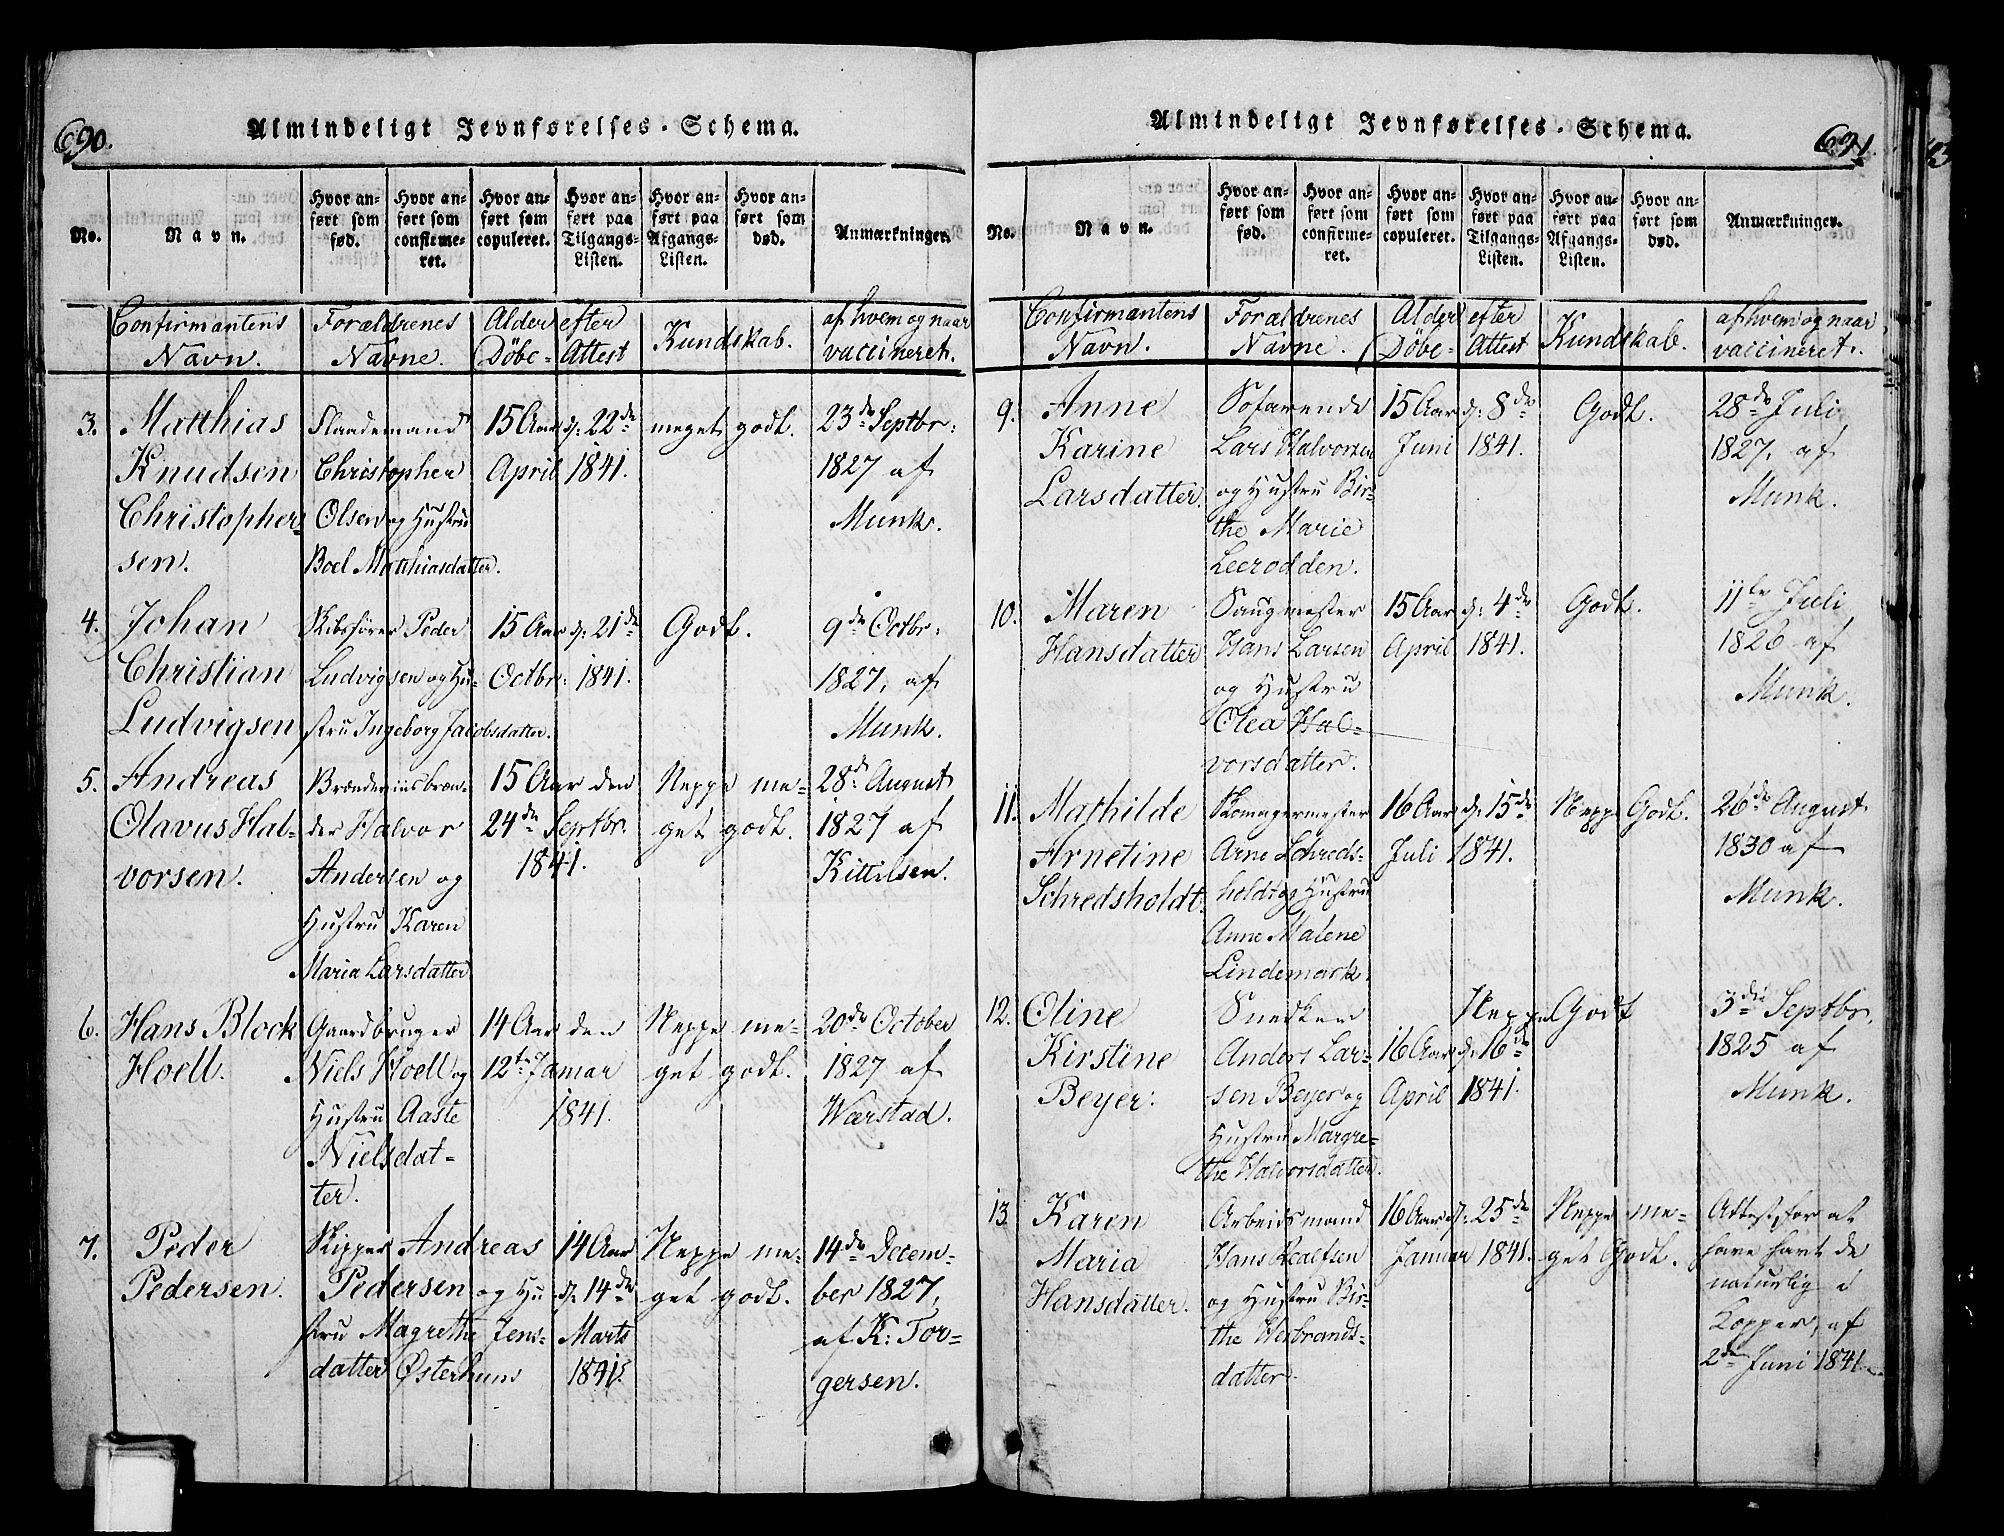 690.
Almindeligt Jevnførelses-Schema.
No.
Navn.
Hvor anført som fød.
Hvor anført som confirmeret.
Hvor anført som copuleret.
Hvor anført paa Tilgangs-Listen.
Hvor anført paa Afgangs-Listen.
Hvor anført som død.
Anmærkninger.
Confirmantens Navn.
Forældrenes Navne.
Alder efter Döbe-Attest
Kundskab.
af hvem og naar vaccineret.
3. Matthias
Knudsen
Christopher-
sen.
Christopher
Olsen og Hustru
Boel Matthiasdatter.
15 Aar d. 22de
April 1841.
meget godt.
23de Septbr:
1827 af
Munk.
4. Johan
Christian
Ludvigsen
Skibsfører Peder
Ludvigsen og Hu-
stru Ingeborg Jacobsdatter.
15 Aar d. 21de
Octbr: 1841.
Godt.
9de Octbr:
1827, af
Munk.
5. Andreas
Olavus Hal-
vorsen.
der Halvor
Andersen og
Hustru Karen
Maria Larsdatter
15 Aar den
24de Septbr.
1841.
Neppe me-
get godt.
28de August
1827 af
Kittilsen.
6. Hans Block
Hoell.
Gaardbruger
Niels Hoell og
Hustru Aaste
Nielsdat-
ter.
14 Aar den
12te Januar
1841.
Neppe me-
get godt.
20de October
1827 af
Warstad.
7. Peder
Pedersen.
Skipper Andreas
Pedersen og Hu
stru Magrethe Jens-
datter Østerhuus
14 Aar
d. 14de
Marts
1841.
Neppe me-
get godt.
14de Decem-
ber 1827,
af K: Tor-
gersen.
691.
Almindeligt Jevnførelses-Schema.
No.
Navn.
Hvor anført som fød.
Hvor anført som confirmeret.
Hvor anført som copuleret.
Hvor anført paa Tilgangs-Listen.
Hvor anført paa Afgangs-Listen.
Hvor anført som død.
Anmærkninger.
Confirmantens Navn.
Forældrenes Navne.
Alder efter Döbe-Attest
Kundskab.
af hvem og naar vaccineret.
9. Anne
Karine
Larsdatter.
Søfarende
Lars Halvorsen
og Hustru Bir-
the Marie
Leerodden.
15 Aar d. 8de
Juni 1841.
Godt.
28de Juli
1827, af
Munk.
10. Maren
Hansdatter
Saugmester
Hans Larsen
og Hustru
Olea Hal-
vorsdatter.
15 Aar d. 4de
April 1841.
Godt.
11te Juli
1826 af
Munk.
11. Mathilde
Arnetine
Schredsholdt.
Skomagermester
Arne Schreds-
holdt og Hustru
Anne Malene
Lindemark.
16 Aar d. 15de
Juli 1841.
Neppe Godt.
26de August
1830 af
Munk.
12. Oline
Kirstine
Beyer.
Snedker
Anders Lar-
sen Beyer og
Hustru Margre-
the Halvorsdatter.
16 Aar d. 16de
April 1841.
Neppe Godt
3die Septbr.
1825 af
Munk.
13. Karen
Maria
Hansdatter.
Arbeidsmand
Hans
og Hustru Bir-
the Herbrands-
datter.
16 Aar d. 25de
Januar 1841.
Neppe me-
get Godt.
Attest, for at
have havt de
naturlige
Kopper, af
2den Juni 1841.